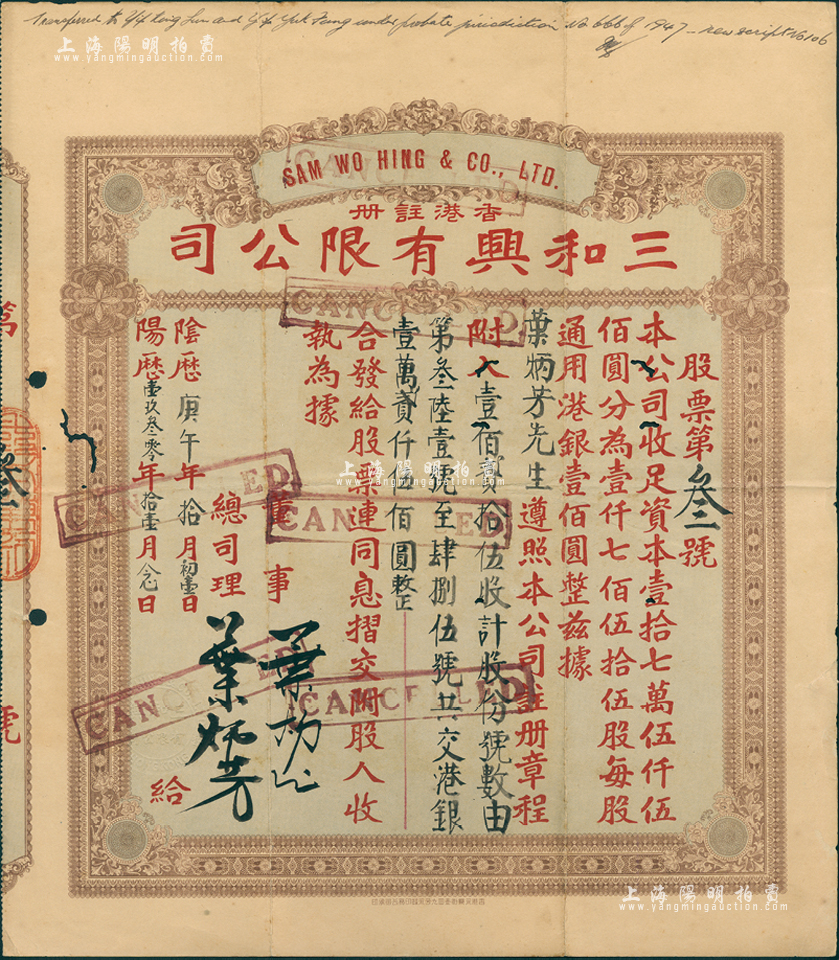 Transferred to Yip Kong Sun and Yip Yuk Fang under probate jurisdiction No 666 of 1947 - new script No 106
上海陽明拍賣
www.yangmingauction.com
SAM WO HING & CO., LTD.
香港註册
三和興有限公司
股票第叁號
本公司收足資本壹拾七萬伍仟伍
佰圓分為壹仟七佰伍拾伍股每股
通用港銀壹佰圓整兹據
葉炳芳先生遵照本公司註册章程
附入壹佰貳拾伍股計股份號數由
第叁陸壹號至肆捌伍號共交港銀
壹萬貳仟伍佰圓整正
合發給股票連同息摺交附股人收
執為據
董事
總司理
葉炳芳
給
陰歷庚午年拾月初壹日
陽歷壹玖叁零年拾壹月念日
CANCELLED
CANCELLED
CANCELLED
CANCELLED
CANCELLED
CANCELLED
第
叁
號
上海陽明拍賣
www.yangmingauction.com
上海陽明拍賣
www.yangmingauction.com